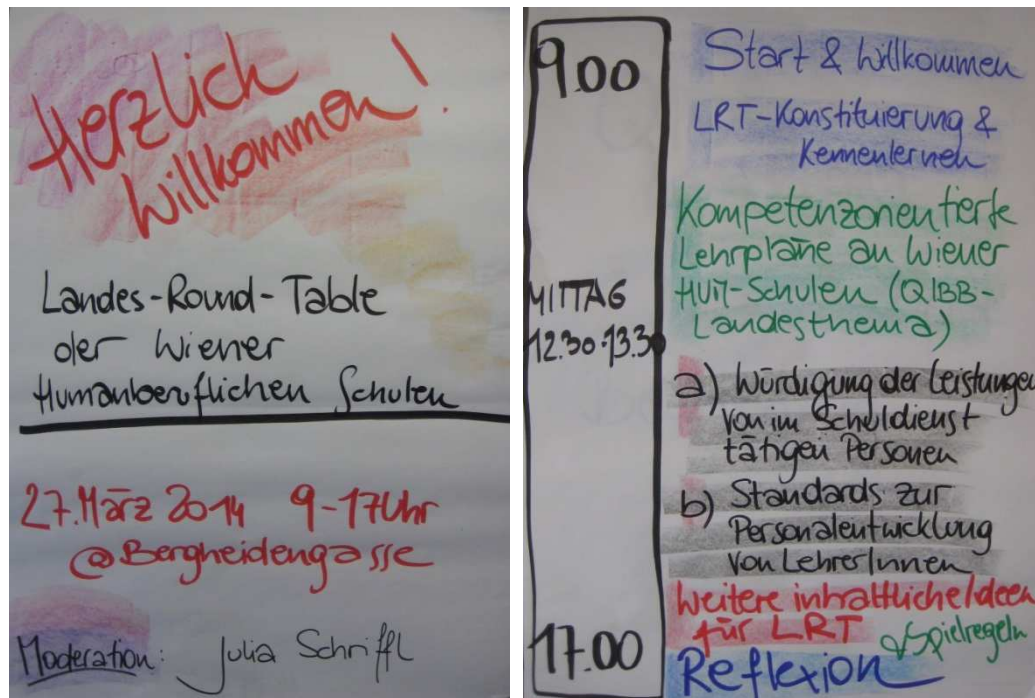 Herzlich
Willkommen!
Landes-Round-Table
der Wiener
Humanberuflichen Schulen
27. März 2014 9-17 Uhr
@Bergheidengasse
Moderation: Julia Schriffl
9.00
Start & Willkommen
LRT-Konstituierung &
Kennenlernen
Kompetenzorientierte
Lehrpläne an Wiener
HUM-Schulen (QIBB-
Landesthema)
MITTAG
12.30-13.30
a) Würdigung der Leistungen
von im Schuldienst
tätigen Personen
b) Standards zur
Personalentwicklung
von LehrerInnen
Weitere inhaltliche Ideen
für LRT & Spielregeln
17.00
Reflexion